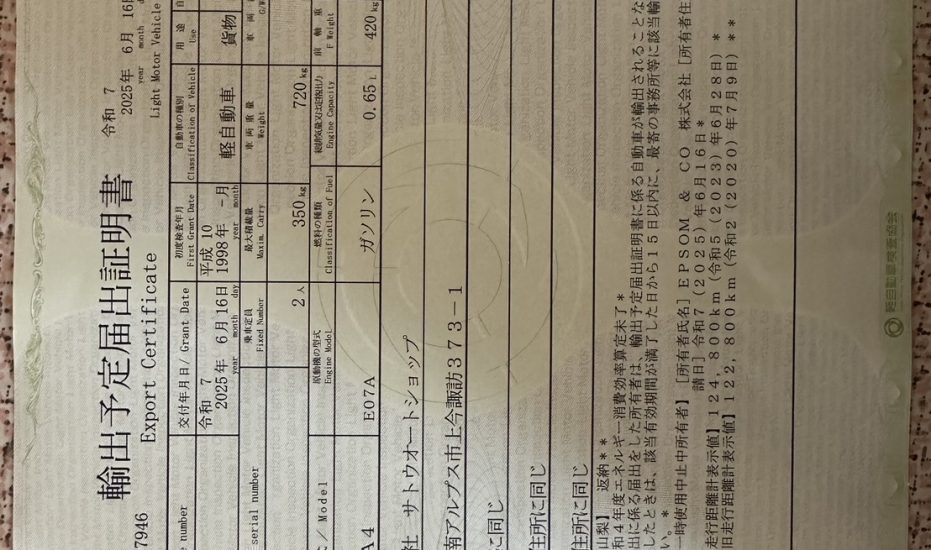 輸出予定届出証明書
Export Certificate
令和 7
2025年 6月 16日
year month
Light Motor Vehicle
7946
number
交付年月日/Grant Date
令和 7
2025年 6月 16日
year month day
初度検査年月
First Grant Date
平成 10
1998年 -月
year month
自動車の種別
Classification of Vehicle
軽自動車
用途
Use
貨物
serial number
乗車定員
Fixed Number
2人
最大積載量
Maxim. Carry
350 kg
車両重量
Weight
720 kg
前軸重
F Weight
420 kg
/ Model
A4
原動機の型式
Engine Model
E07A
燃料の種類
Classification of Fuel
ガソリン
総排気量又は定格出力
Engine Capacity
0.65 L
社 サトウオートショップ
南アルプス市上今諏訪373-1
に同じ
住所に同じ
住所に同じ
山梨】 返納**
和4年度エネルギー消費効率算定未了*
出に係る届出をした所有者は、輸出予定届出証明書に係る自動車が輸出されることな
したときは、該当有効期間が満了した日から15日以内に、最寄の事務所等に該当輸
い。*
一時使用中止中所有者】[所有者氏名]EPSOM & CO 株式会社[所有者住
請日]令和7(2025)年6月16日*
走行距離計表示値】124,800km(令和5(2023)年6月28日)*
旧走行距離計表示値】122,800km(令和2(2020)年7月9日)**
軽自動車検査協会